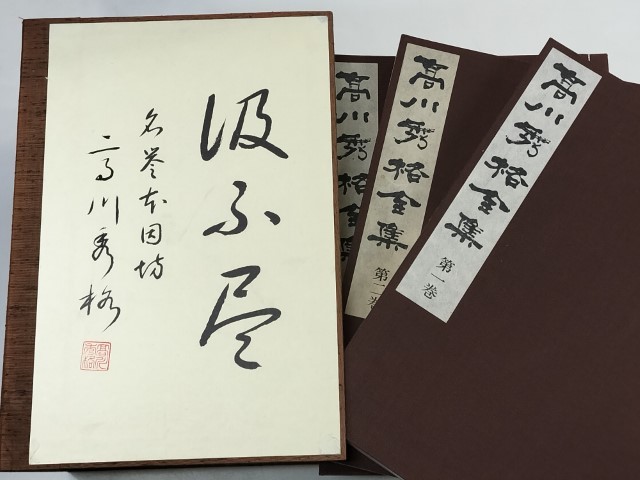 汲不尽
名誉本因坊
高川秀格
高川秀格全集
高川秀格全集
第二巻
高川秀格全集
第一巻